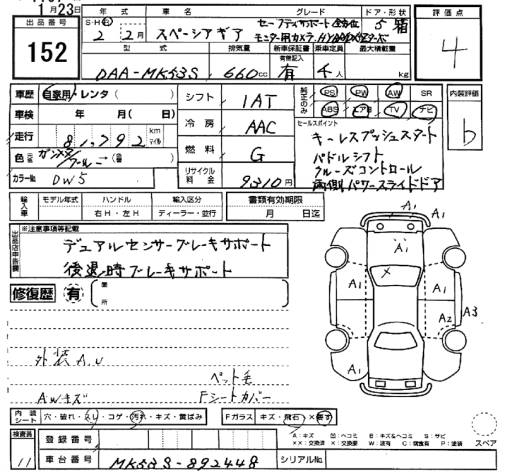 月23日
出品番号
152
年式 車名 グレード ドア・形状
S・H 2年 2月 スペーシアギア セーフティサポート 全方位モニター用カメラ 5 箱
評価点
4
型式 排気量 新車保証書 乗車定員 最大積載量
有無記入
DAA-MK53S 660cc 有 4人 kg
車歴 自家用・レンタ( )
車検 年 月( )
走行 81,792 km マイル
色 元色
カラーNo. DW5
シフト IAT
冷房 AAC
燃料 G
リサイクル料金 9310円
純正のみ PS PW AW SR
ABS エアB TV ナビ
セールスポイント
キーレスプッシュスタート
パドルシフト
クルーズコントロール
両側パワースライドドア
内装評価
b
輸入車 モデル年式 ハンドル 輸入区分
右H・左H ディーラー・並行
書類有効期限
月 日迄
出品店申告欄
※注意事項等記載
デュアルセンサーブレーキサポート
後退時ブレーキサポート
修復歴 有 箇所
外装A,U
ペット毛
AWキズ Fシートカバー
A1
A1
A1 A1
A3
A2
A1 A1
内装シート 穴・破れ・スレ・コゲ・汚れ・キズ・黄ばみ
Fガラス キズ・飛石
A:キズ B:キズ&ヘコミ S:サビ
XX:交換済 X:要交換 W:波有 C:腐食有 P:塗装
スペア
検査員
11
登録番号
車台番号 MK53S-892448 シリアルNo.